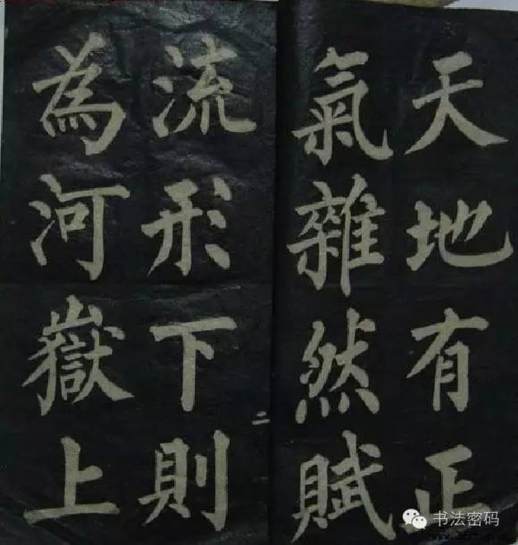 天地有正
氣雜然賦
流形下則
為河嶽上
二
书法密码